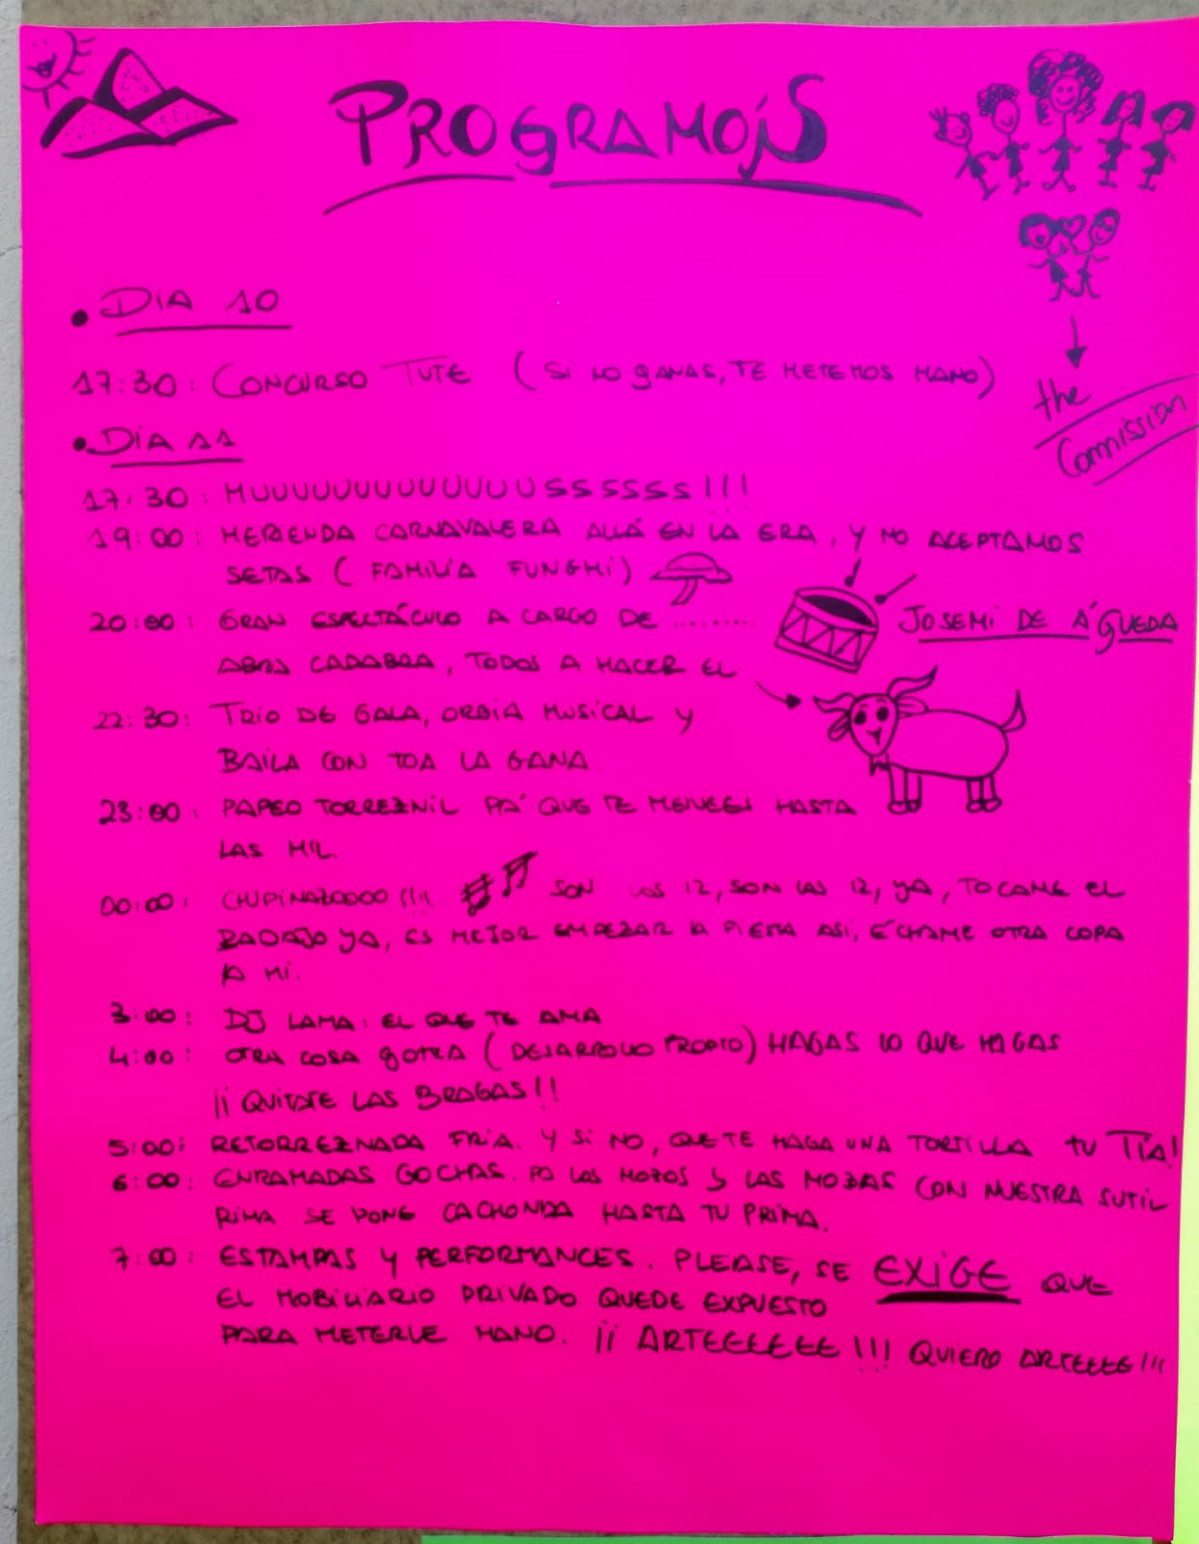 PROGRAMOIS
• DIA 10
17:30: CONCURSO TUTE (SI NO GANAS, TE METEMOS MANO)
the
Commission
• DIA 11
17:30: MUUUUUUUUUUUUUSSSSSS!!!
19:00: MERIENDA CARNAVALERA ALLÁ EN LA ERA, Y NO ACEPTAMOS
SETAS (FAMILIA FUNGHI)
20:00: GRAN ESPECTÁCULO A CARGO DE .........
JOSEMI DE ÁGUEDA
ABRA CADABRA, TODOS A HACER EL
22:30: TRIO DE GALA, ORGIA MUSICAL Y
BAILA CON TOA LA GANA.
23:00: PAPEO TORREZNIL PA' QUE TE MENEES HASTA
LAS MIL.
00:00: CHUPINAZOOOO!!! SON LAS 12, SON LAS 12, YA, TOCAME EL
BADAJO YA, ES MEJOR EMPEZAR LA FIESTA ASI, ÉCHAME OTRA COPA
A MI.
3:00: DJ LAMA: EL QUE TE AMA
4:00: OTRA COSA GOTRA (DESARROLLO PROPIO) HAGAS LO QUE HAGAS
¡¡ QUITATE LAS BRAGAS!!
5:00: RETORREZNADA FRIA. Y SI NO, QUE TE HAGA UNA TORTILLA TU TÍA!
6:00: ENRAMADAS GOCHAS. PA LOS MOZOS Y LAS MOZAS CON NUESTRA SUTIL
RIMA SE PONE CACHONDA HASTA TU PRIMA.
7:00: ESTAMPAS Y PERFORMANCES. PLEASE, SE EXIGE QUE
EL MOBILIARIO PRIVADO QUEDE EXPUESTO
PARA METERLE MANO. ¡¡ ARTEEEEEEE!!! QUIERO ARTEEEE!!!